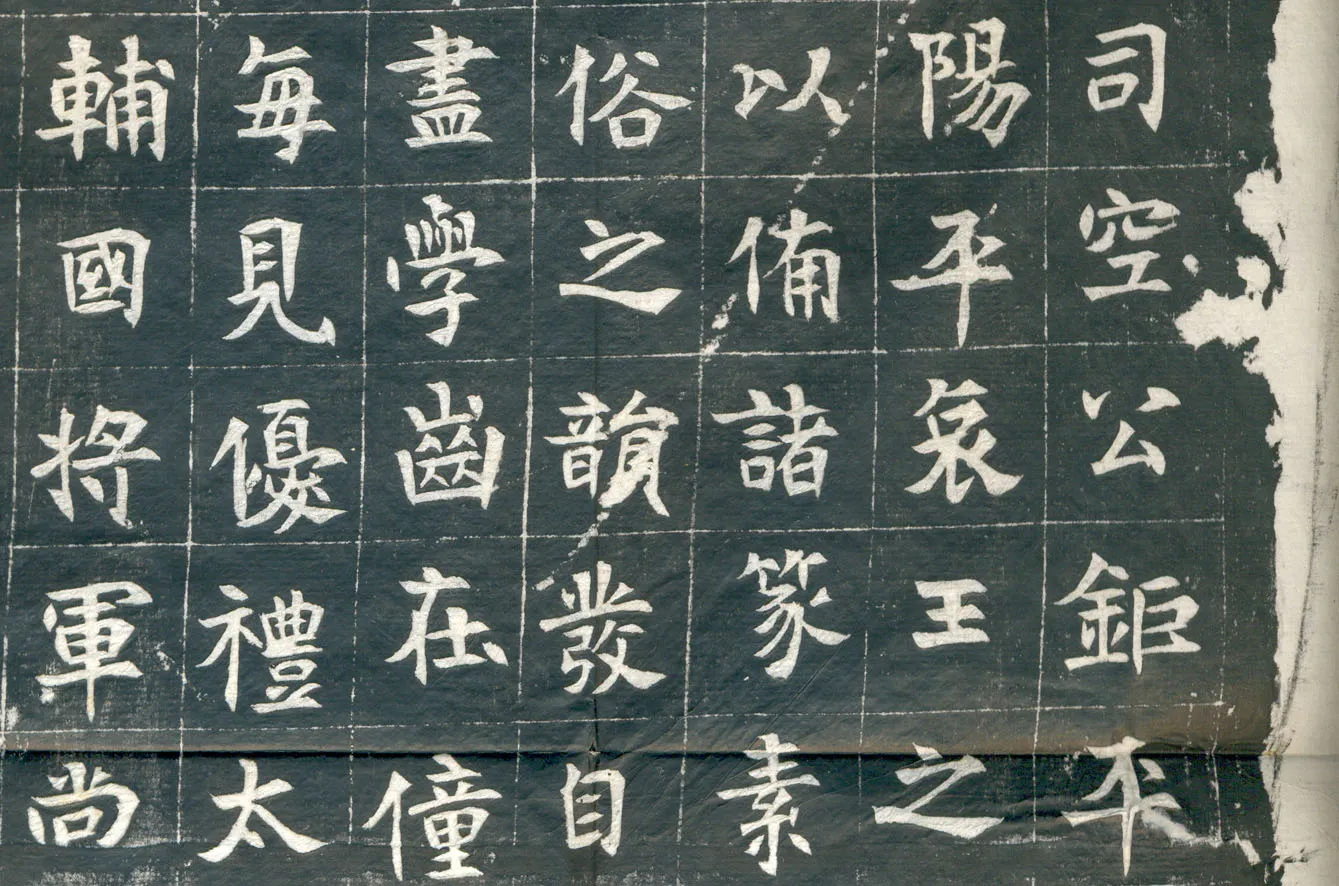 司空公鉅平
陽平哀王之
以備諸篆素
俗之韻發自
盡學齒在僮
每見優禮太
輔國將軍尚